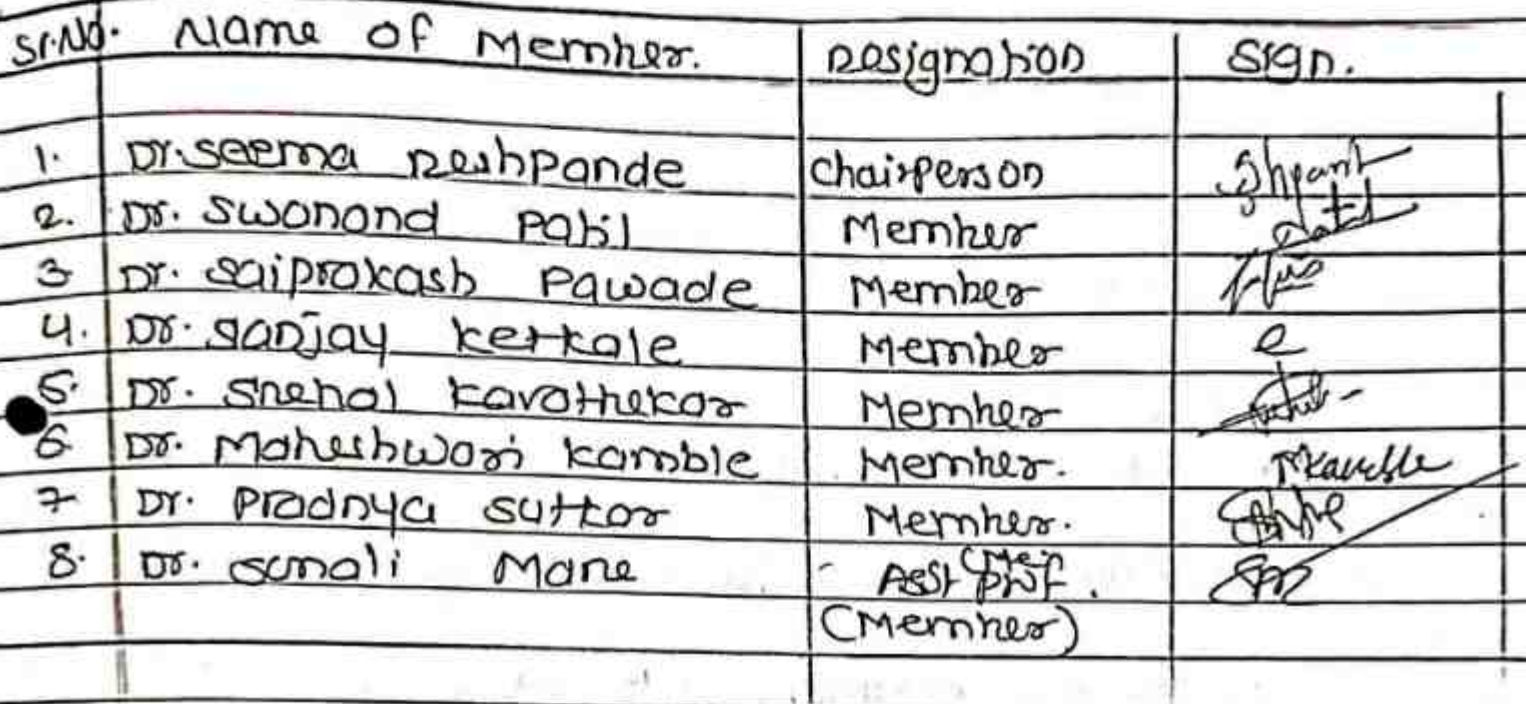 Sr.No. Name of Member. Designation Sign.
1. Dr. Seema Deshpande Chairperson
2. Dr. Swanand Patil Member Patil
3 Dr. Saiprakash Pawade Member
4. Dr. Sanjay Kerkale Member
5. Dr. Snehal Kavathekar Member
6 Dr. Maheshwari Kamble Member. MKamble
7 Dr. Pradnya Suttar Member.
8. Dr. Sonali Mane Asst Prof.
(Member)